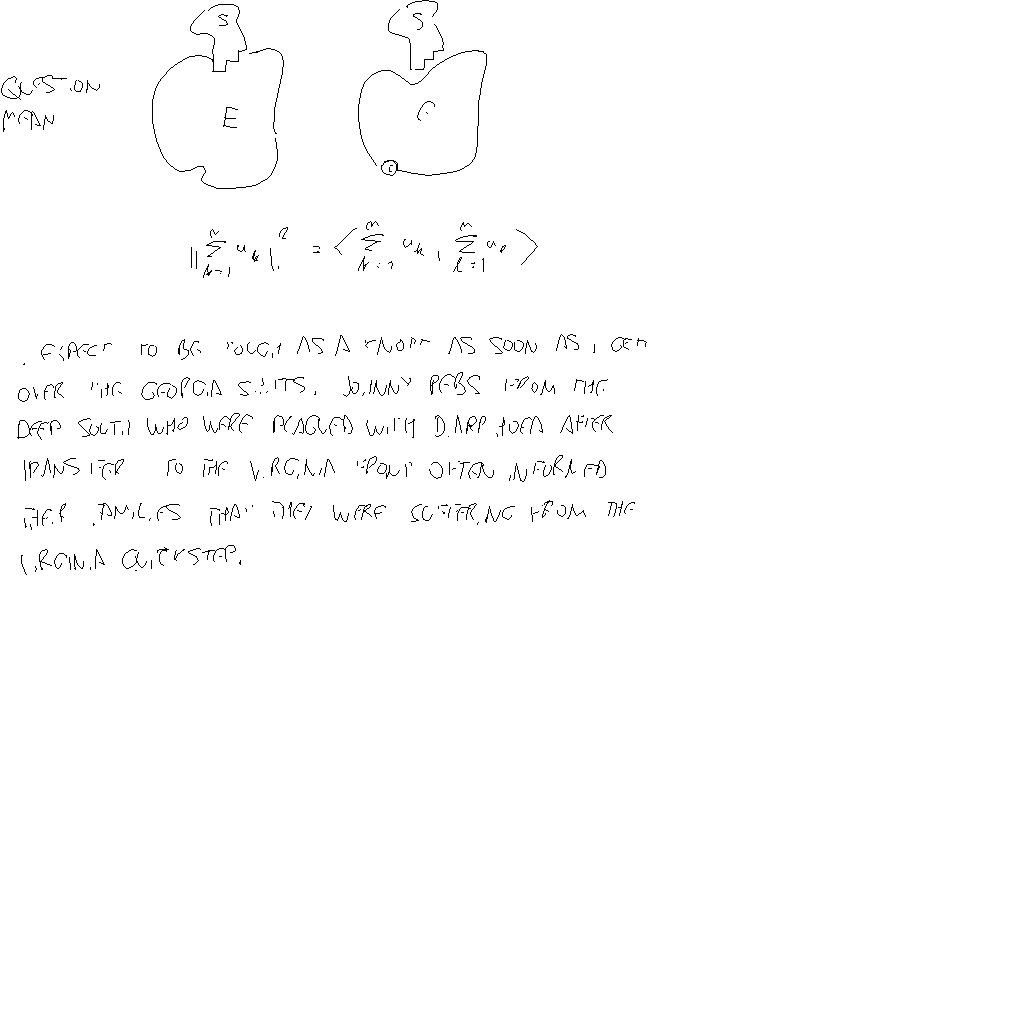 S S
QUESTION
MEAN
E
‖∑_{k=1}^{n} u_k‖² = ⟨∑_{k=1}^{n} u_k, ∑_{l=1}^{n} u_l⟩
I EXPECT TO BE TOUGH AS A KNOTT AS SOON AS I GET
OVER THE GEORGIA SHITS. JOHNNY REBS FROM THE
DEEP SOUTH WHO WERE PLAGUED WITH DIARRHOEA AFTER
TRANSFER TO THE VIRGINIA FRONT OFTEN INFORMED
THEIR FAMILIES THAT THEY WERE SUFFERING FROM THE
VIRGINIA QUICKSTEP.